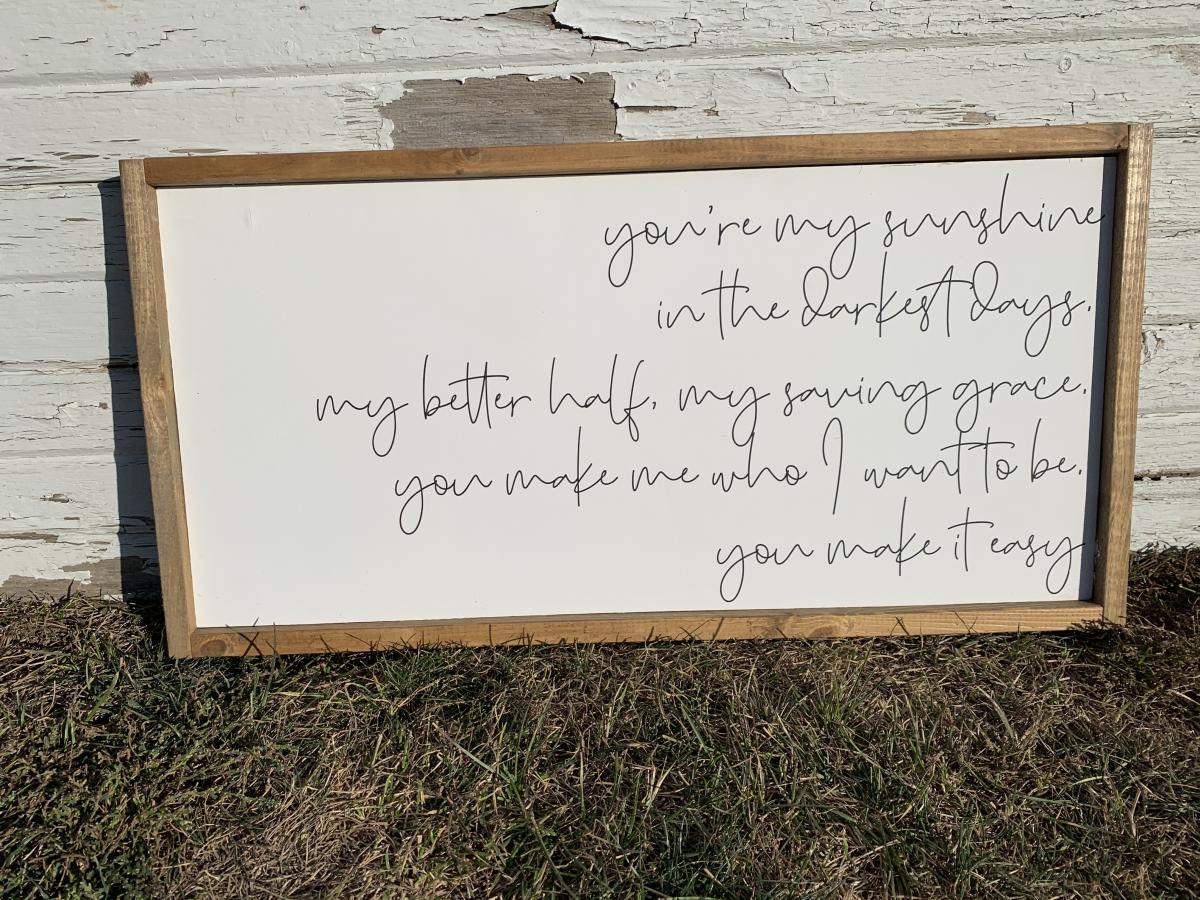 you're my sunshine
in the darkest days.
my better half, my saving grace.
you make me who I want to be.
you make it easy